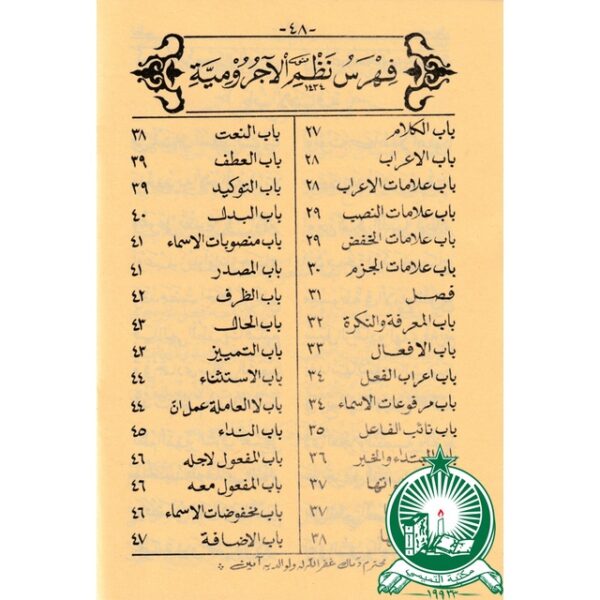 -٤٨-
فهرس نظم الآجرومية
١٤٣٤
باب الكلام ٢٧
باب الاعراب ٢٨
باب علامات الاعراب ٢٨
باب علامات النصب ٢٩
باب علامات الخفض ٢٩
باب علامات الجزم ٣٠
فصل ٣١
باب المعرفة والنكرة ٣٢
باب الافعال ٣٣
باب اعراب الفعل ٣٤
باب مرفوعات الاسماء ٣٤
باب نائب الفاعل ٣٥
المبتداء والخبر ٣٦
٣٧
٣٧
٣٨
باب النعت ٣٨
باب العطف ٣٩
باب التوكيد ٣٩
باب البدل ٤٠
باب منصوبات الاسماء ٤١
باب المصدر ٤١
باب الظرف ٤٢
باب الحال ٤٣
باب التمييز ٤٣
باب الاستثناء ٤٤
باب لا العاملة عمل انّ ٤٤
باب النداء ٤٥
باب المفعول لاجله ٤٦
باب المفعول معه ٤٦
باب مخفوضات الاسماء ٤٦
باب الاضافة ٤٧
غفر الله له ولوالديه آمين
مكتبة
١٩٩٣